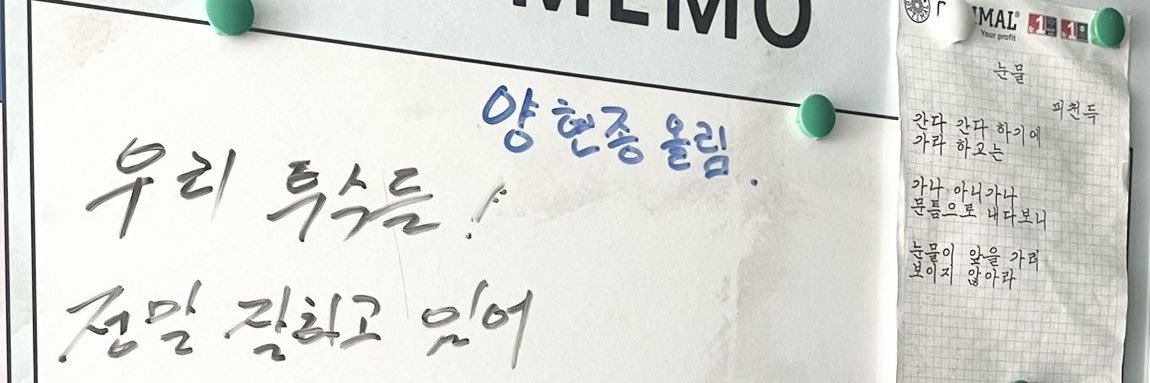 MEMO
양현종 올림.
우리 투수들!
정말 잘하고 있어
IMAL®
Your profit
눈물
피천득
간다 간다 하기에
가라 하고는
가나 아니가나
문틈으로 내다보니
눈물이 앞을 가려
보이지 않아라